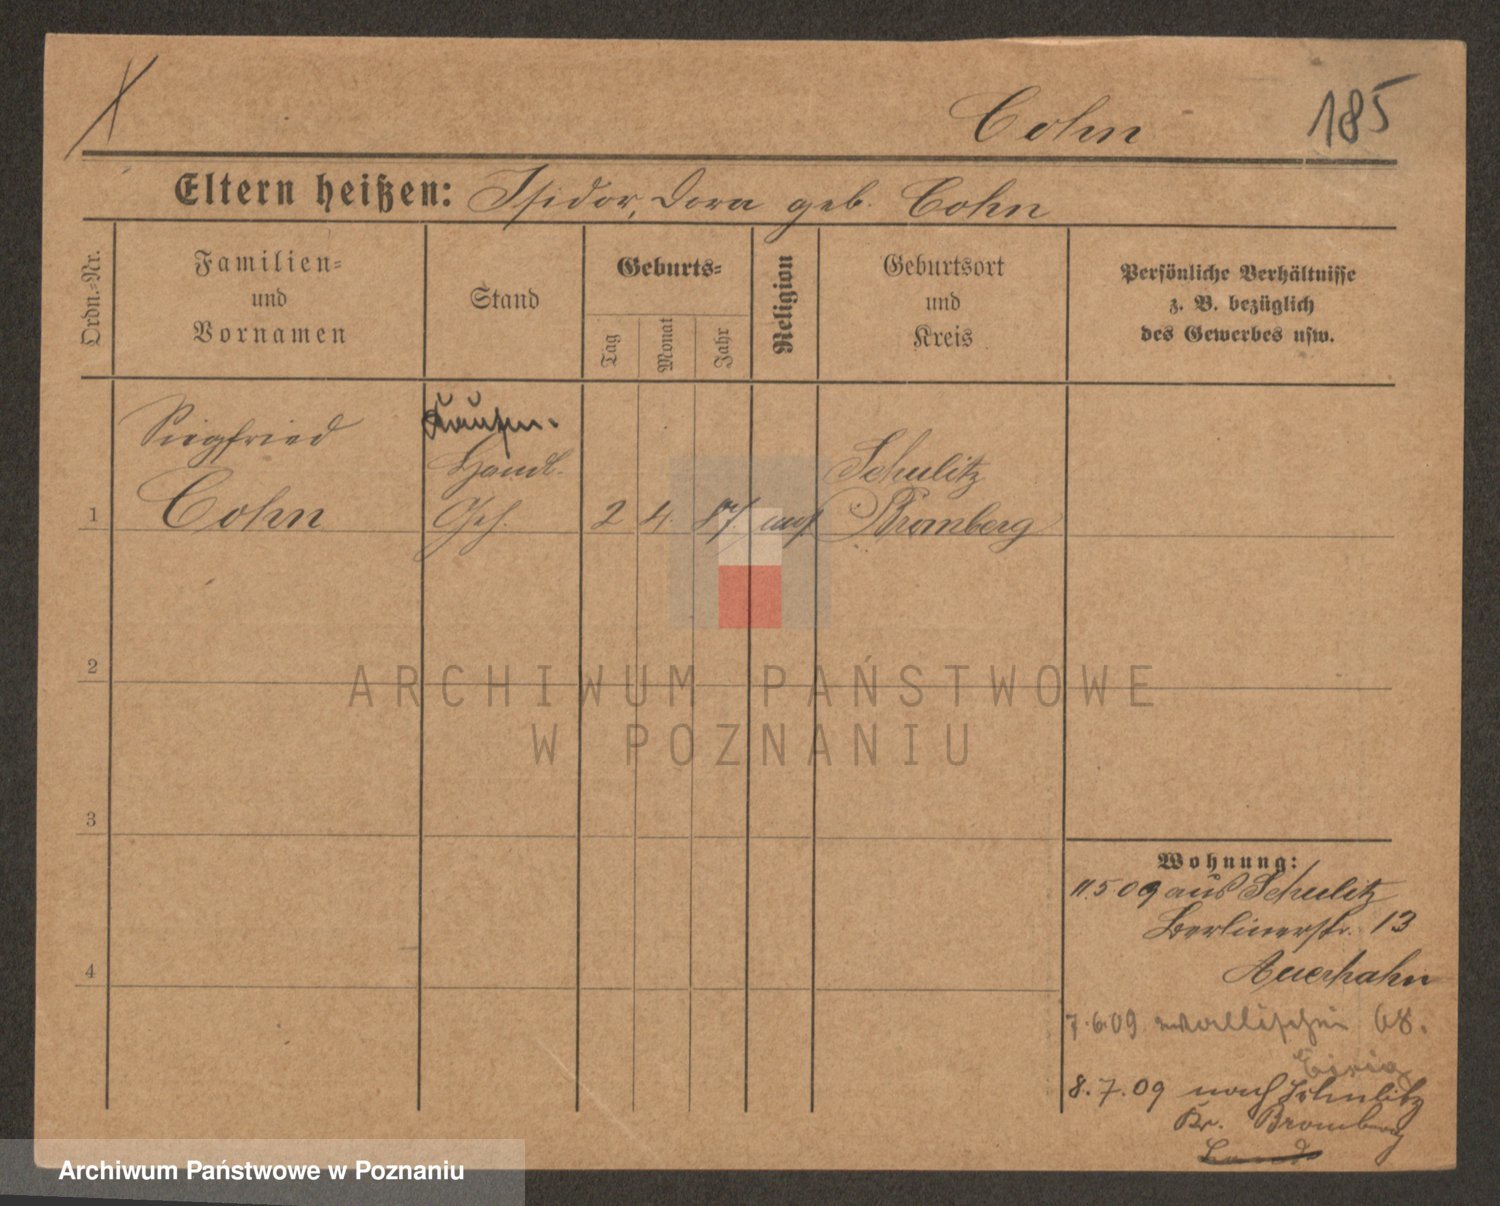 Cohn
185
Eltern heißen: Isidor, Dora geb. Cohn
Ordn.=Nr.
Familien=
und
Vornamen
Stand
Geburts=
Tag
Monat
Jahr
Religion
Geburtsort
und
Kreis
Persönliche Verhältnisse
z. B. bezüglich
des Gewerbes usw.
Siegfried
Cohn
Handl.
Geh.
1
2
4.
87.
Schulitz
Bromberg
2
3
4
Wohnung:
11.5 09 aus Schulitz
Berlinerstr. 13
Auerhahn
7.6.09 Wallischei 68.
8.7.09 nach Schulitz
Kr. Bromberg
ARCHIWUM PAŃSTWOWE
W POZNANIU
Archiwum Państwowe w Poznaniu